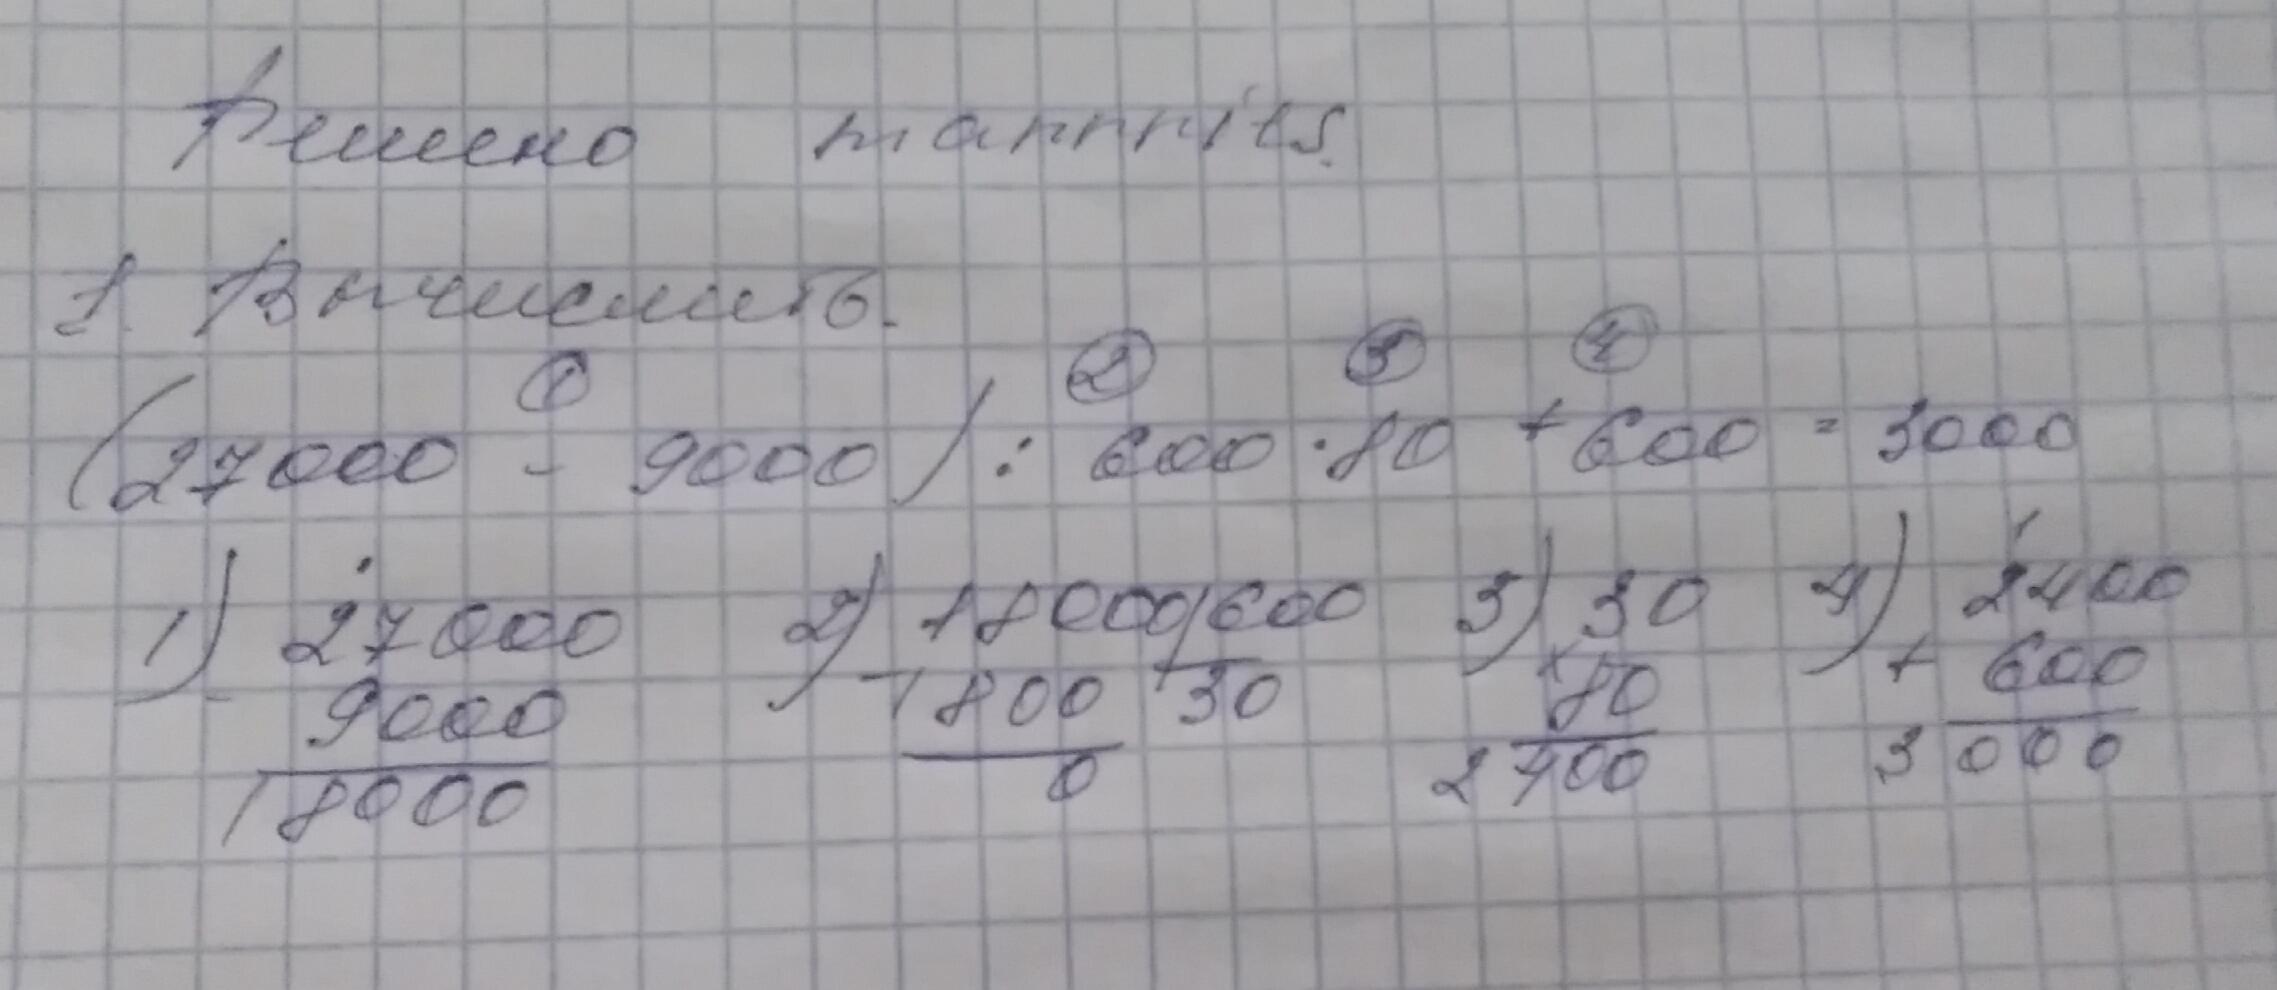 Решено mannnits.
1. Вычислить.
① ② ③ ④
(27000 - 9000) : 600 · 80 + 600 = 3000
1) 27000 2) 18000 600 3) 30 4) 2400
- 9000 - 1800 30 × 80 + 600
18000 0 2400 3000